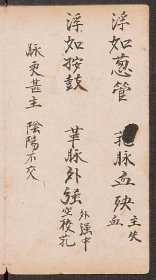 浮如葱管 芤脉血殃 主失血
浮如按鼓 革脉外强 外强中空校芤
脉更甚主 陰陽不交